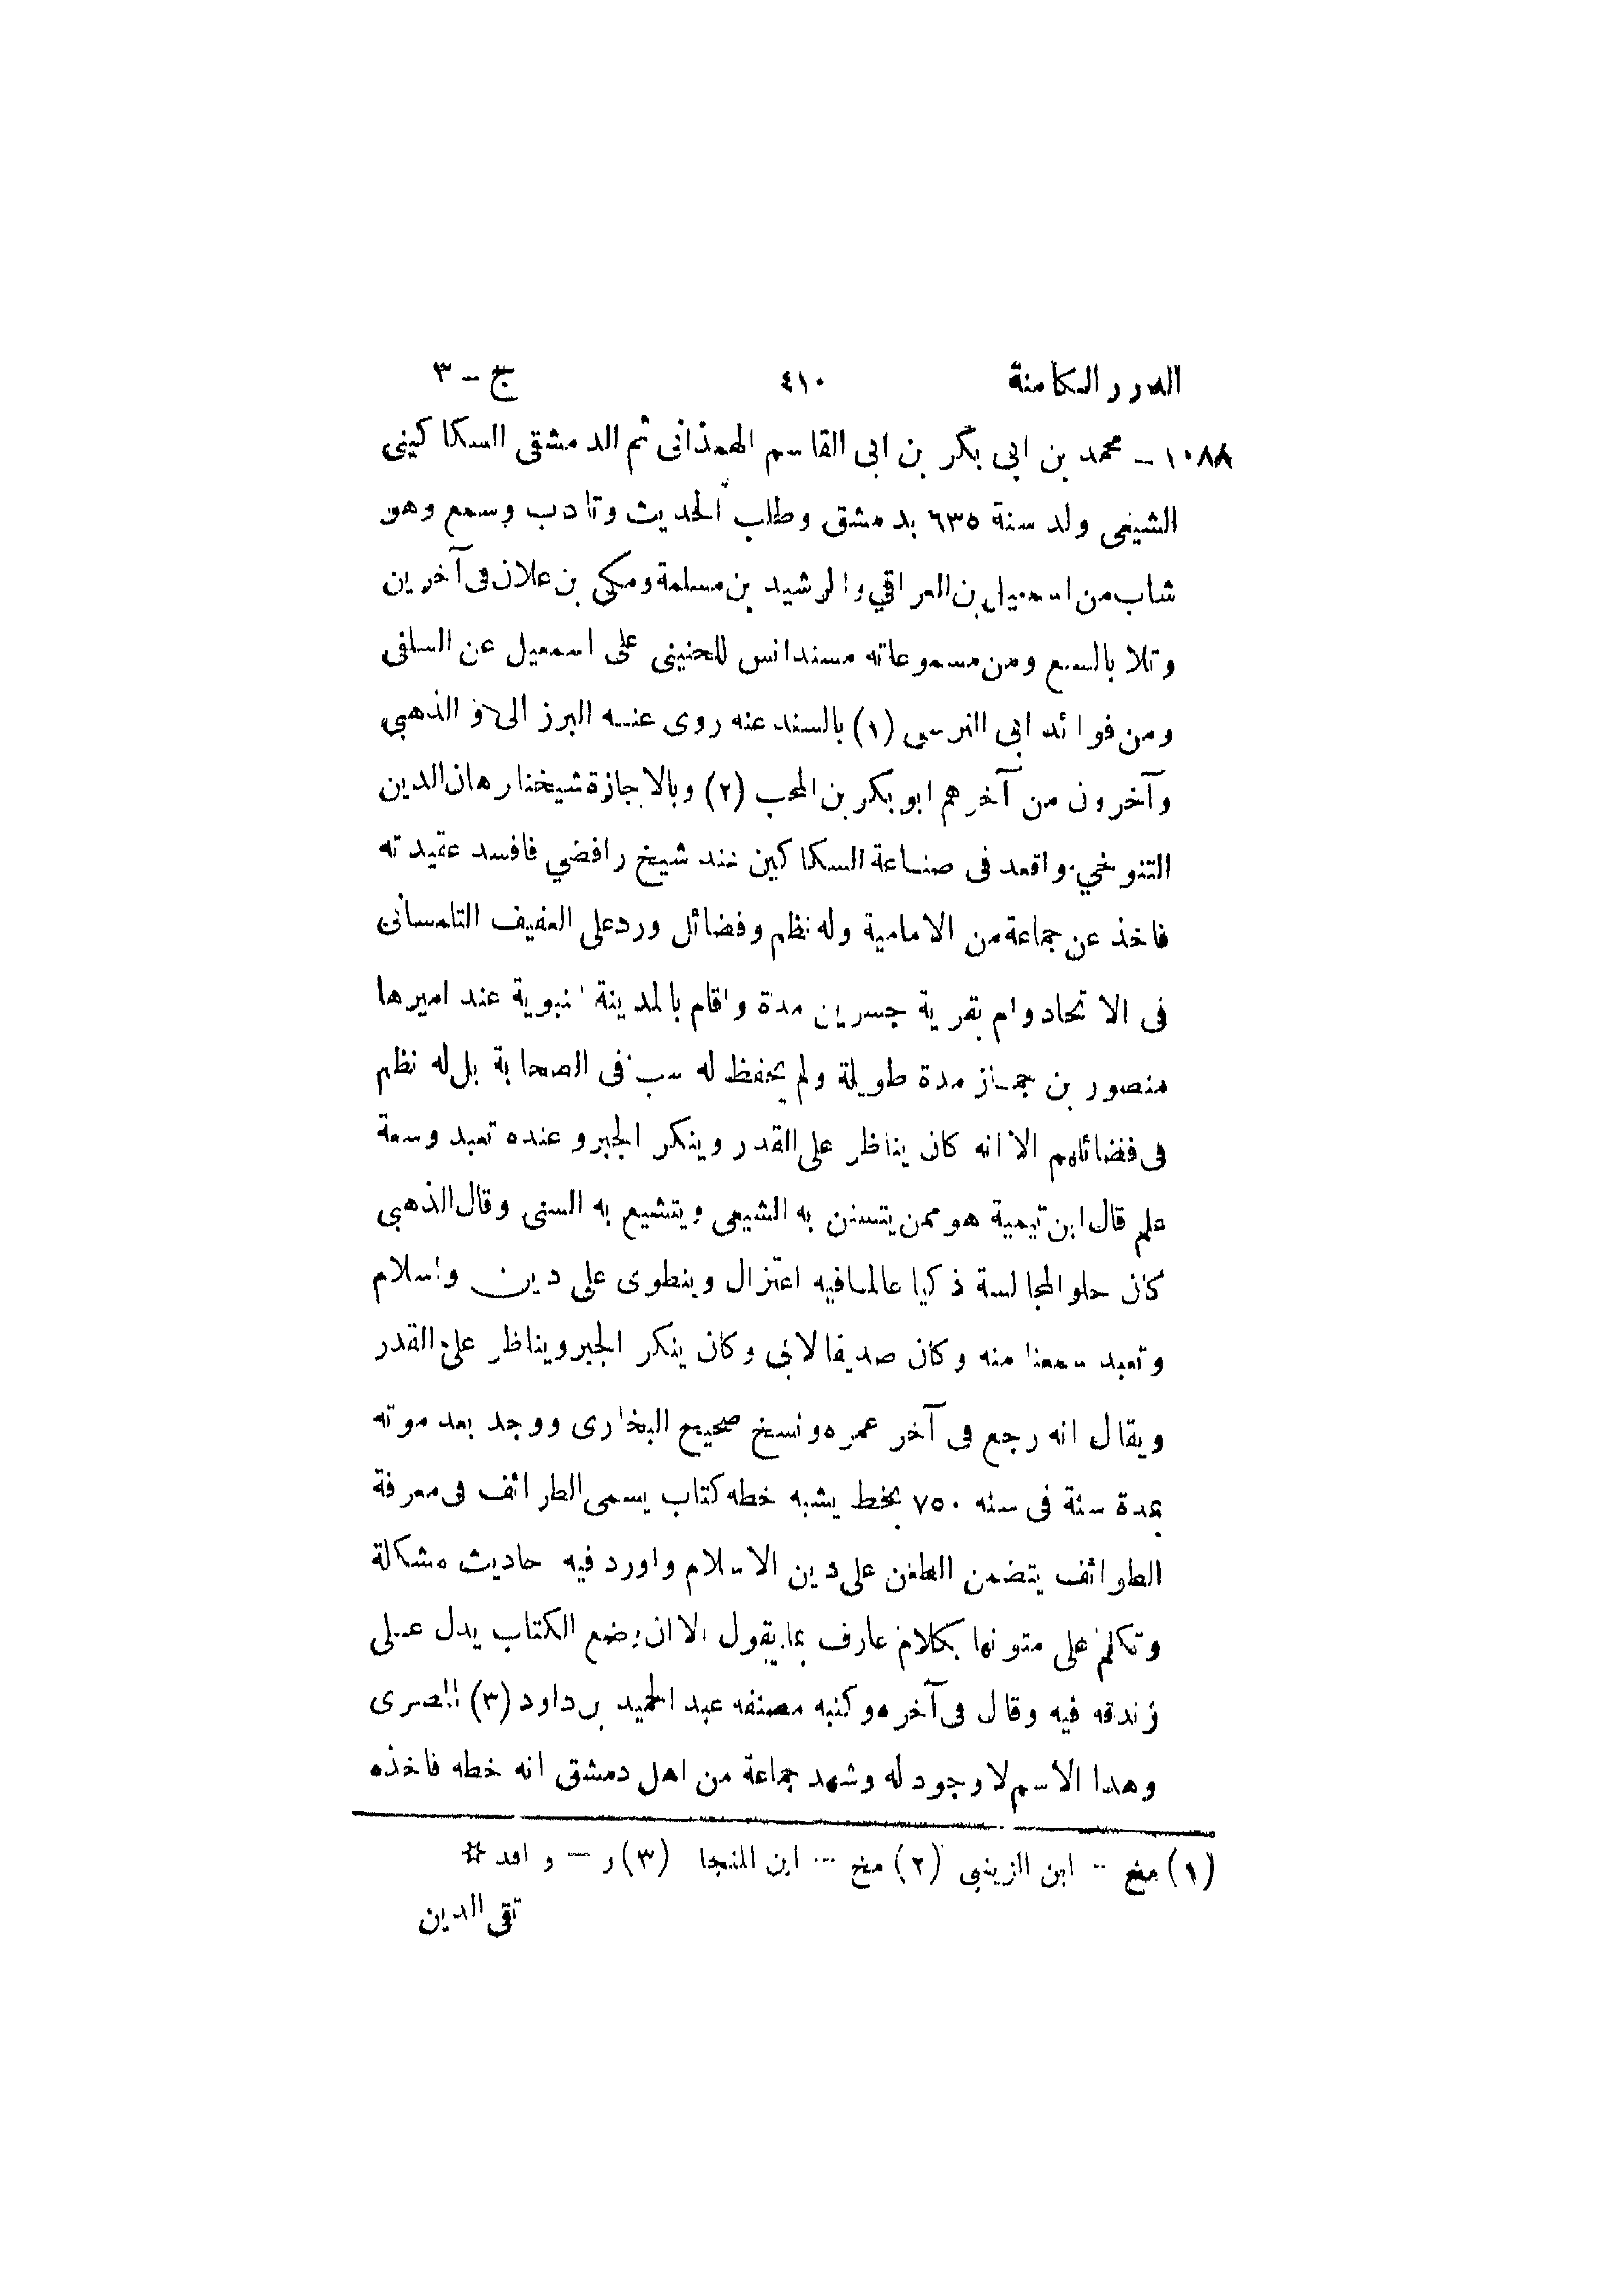 الدرر الكامنة ٤١٠ ج - ٣
١٠٨٨ - محمد بن ابى بكر بن ابى القاسم الهمذانى ثم الدمشقى السكاكينى
الشيعى ولد سنة ٦٣٥ بدمشق وطلب الحديث وتادب وسمع وهو
شاب من اسمعيل بن العراقي والرشيد بن مسلمة ومكى بن علان فى آخرين
وتلا بالسبع ومن مسموعاته مسند انس للحنينى على اسمعيل عن السلفى
ومن فوائد ابى النرسى (١) بالسند عنه روى عنه البرزالى و الذهبى
وآخرون من آخرهم ابو بكر بن المحب (٢) وبالاجازة شيخنا برهان الدين
التنوخي واقعد فى صناعة السكاكين عند شيخ رافضي فافسد عقيدته
فاخذ عن جماعة من الامامية وله نظم وفضائل ورد على العفيف التلمسانى
فى الاتحاد وام بقرية جسرين مدة واقام بالمدينة النبوية عند اميرها
منصور بن جماز مدة طويلة ولم يحفظ له سب فى الصحابة بل له نظم
فى فضائلهم الا انه كان يناظر على القدر وينكر الجبر وعنده تعبد وسعة
علم قال ابن تيمية هو ممن يتسنن به الشيعى ويتشيع به السنى وقال الذهبى
كان حلو المجالسة ذكيا عالما فيه اعتزال وينطوى على دين واسلام
وتعبد سمعنا منه وكان صديقا لابى وكان ينكر الجبر ويناظر على القدر
ويقال انه رجع فى آخر عمره ونسخ صحيح البخارى ووجد بعد موته
بمدة سنة فى سنه ٧٥٠ بخط يشبه خطه كتاب يسمى الطرائف فى معرفة
الطوائف يتضمن الطعن على دين الاسلام واورد فيه احاديث مشكلة
وتكلم على متونها بكلام عارف بما يقول الا ان وضع الكتاب يدل على
زندقه فيه وقال فى آخره وكتبه مصنفه عبد الحميد بن داود (٣) المصرى
وهذا الاسم لا وجود له وشهد جماعة من اهل دمشق انه خطه فاخذه
(١) مخ - ابن الزينبى (٢) مخ - ابن المنجا (٣) ر - و اقد *
تقى الدين